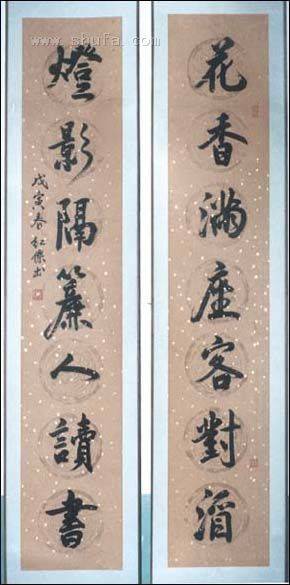 花香滿座客對酒
燈影隔簾人讀書
戊寅春
www.shufa.com